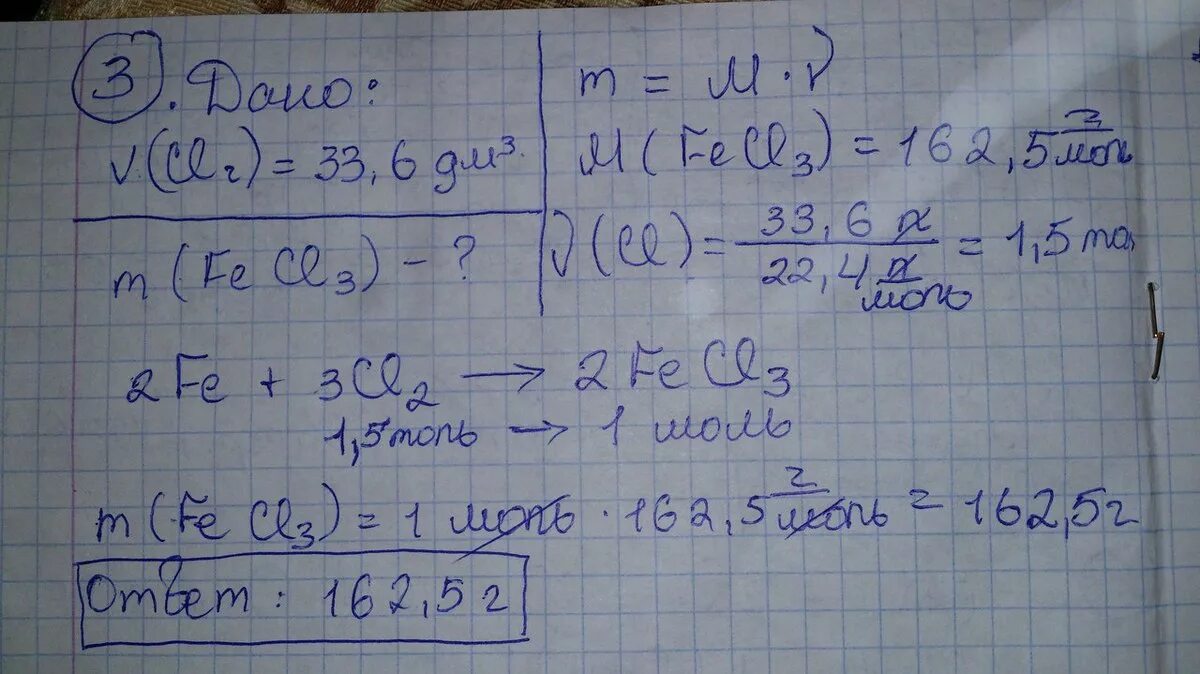 3. Дано:
V(Cl₂) = 33,6 дм³.
m (FeCl₃) - ?
m = M · ν
M (FeCl₃) = 162,5 г/моль
ν (Cl) = 33,6 л / 22,4 л/моль = 1,5 мол
2Fe + 3Cl₂ → 2FeCl₃
1,5 моль → 1 моль
m (FeCl₃) = 1 моль · 162,5 г/моль = 162,5 г
Ответ: 162,5 г